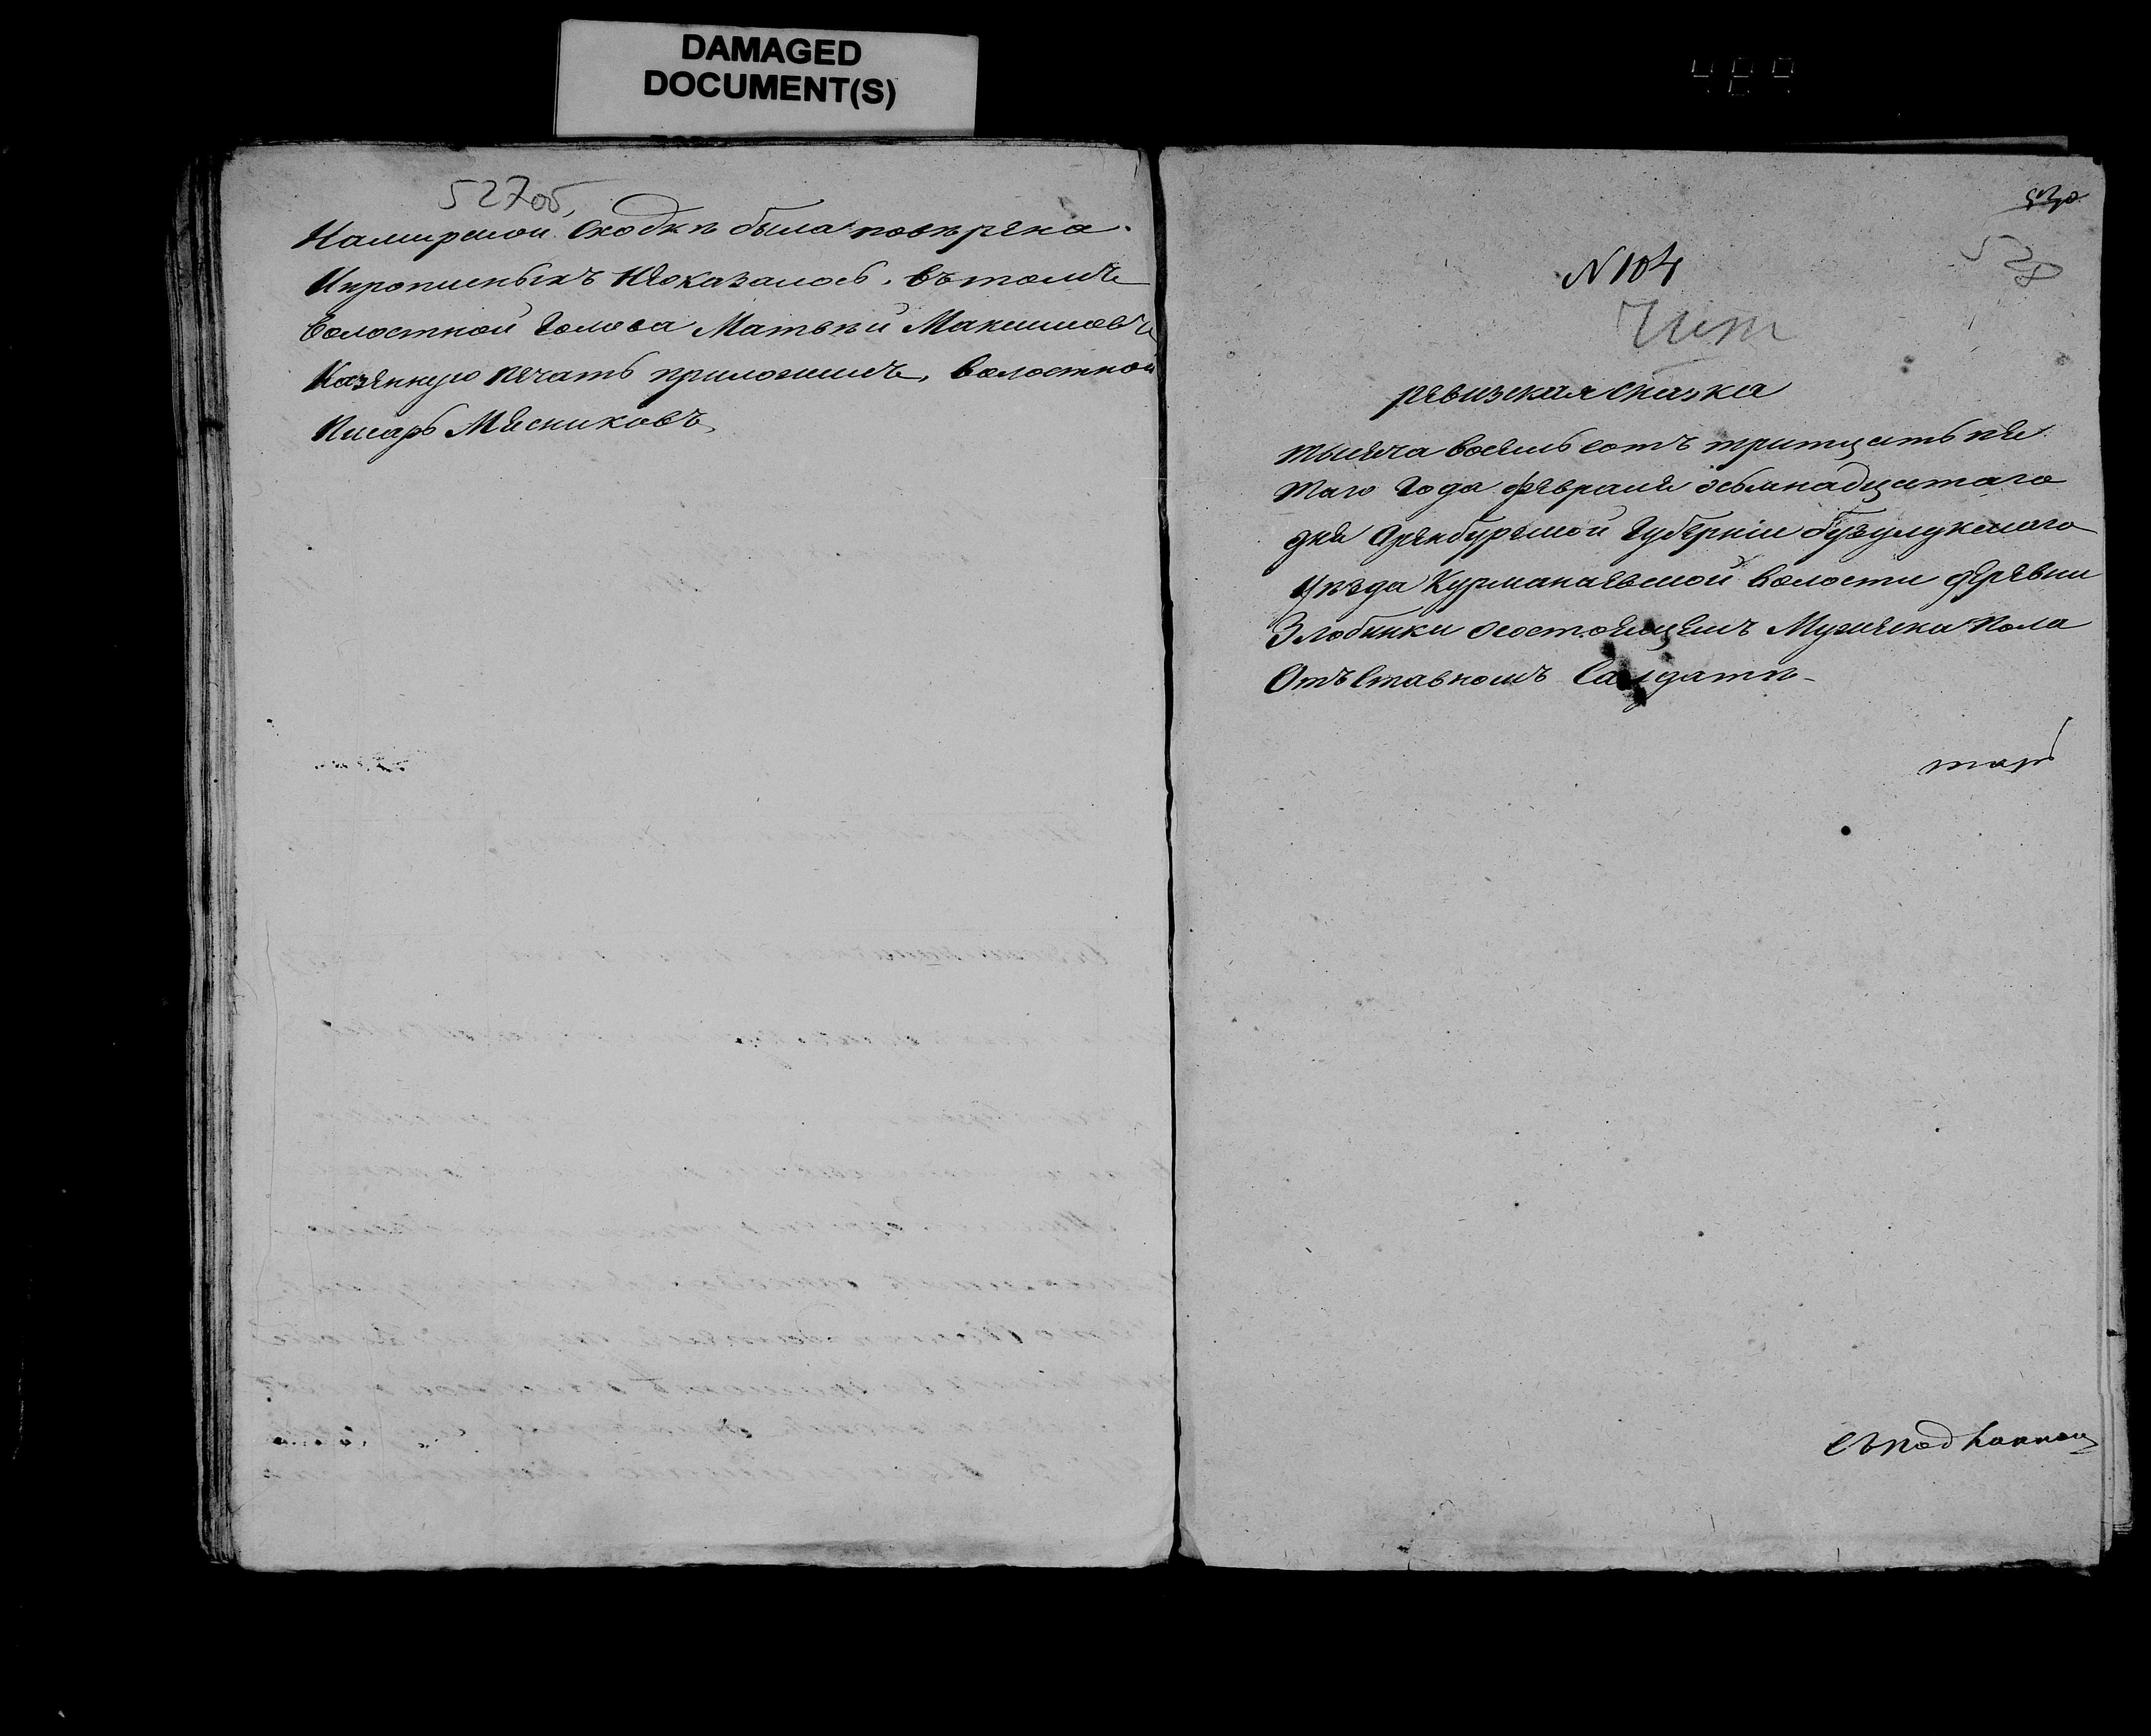 DAMAGED
DOCUMENT(S)
527об,
Намирской Сходкѣ была повѣрена.
Ипрописныхъ Неоказалось. въ томъ
Волостной Голова Матвѣй Максимовъ
Казенную Печать приложилъ, волостной
Писарь Месниковъ
530
528
N 104
Чит
ревизская сказка
тысяча восемь сотъ тритцать пя
таго Года февраля осьмнадцатаго
дня Оренбургской Губерніи бузулукскаго
Уѣзда Курманаевской Волости деревни
Злобинки осостоящемъ Мужеска Пола
Отъставномъ Салдатѣ